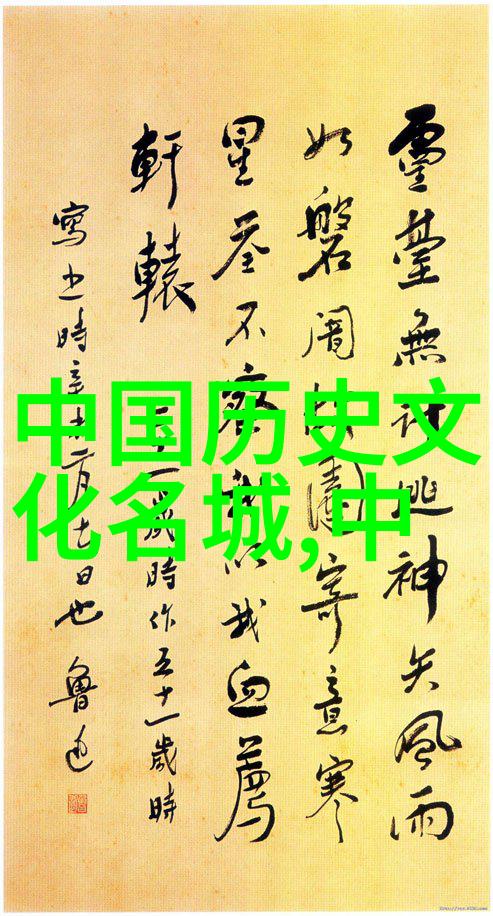 中国历史文
化名城,中
靈臺無計逃神矢風雨
如磐闇故園寄意寒
星荃不察我以我血薦
軒轅
二十一歲時作五十一歲時
寫之時辛未二月十六日也 魯迅